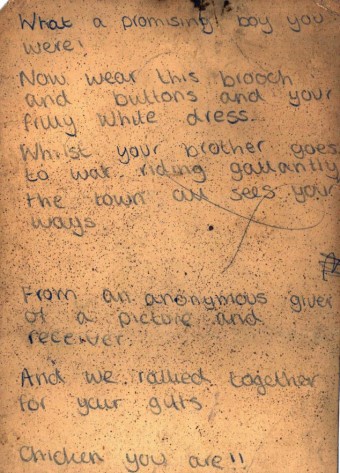 What a promising boy you
were!
Now wear this brooch
and buttons and your
frilly white dress.
Whilst your brother goes
to war riding gallantly
the town all sees your
ways
From an anonymous giver
of a picture and
receiver
And we rallied together
for your gifts
Chicken you are!!